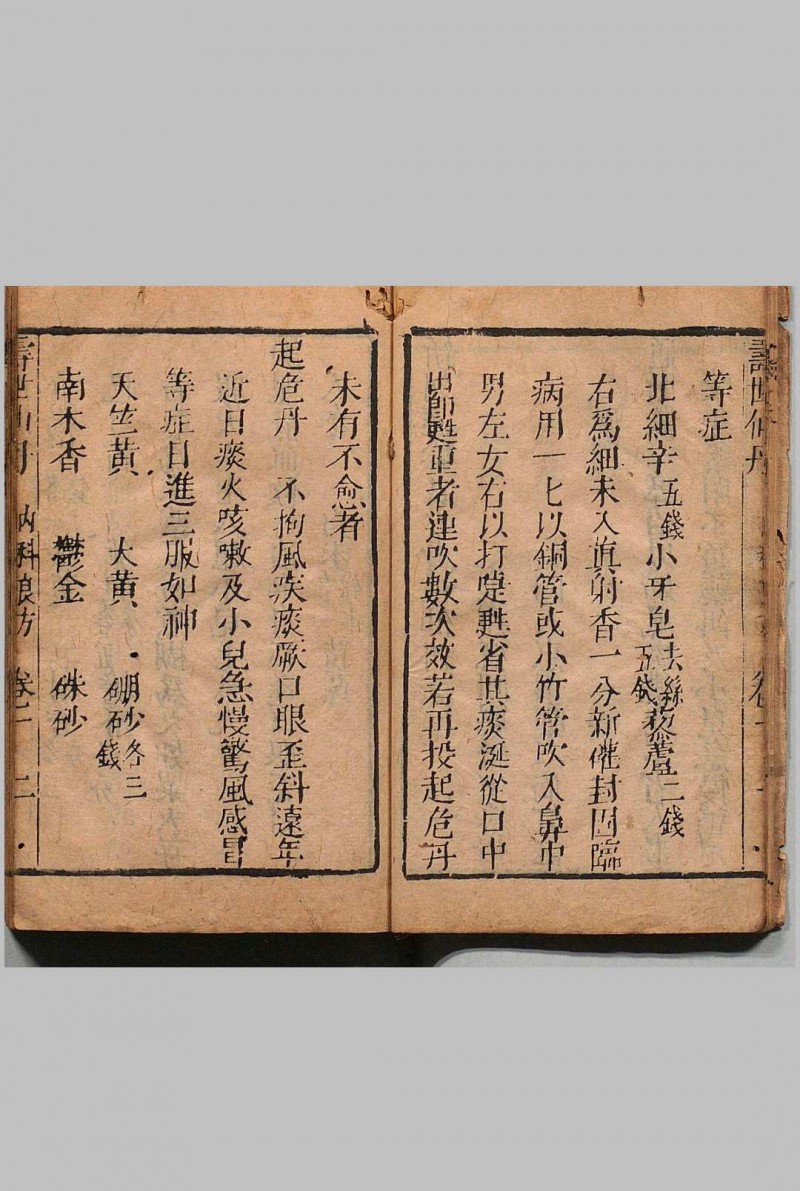 等症
北細辛五錢小牙皂去絲五錢藜蘆二錢
右爲細末入眞射香一分新罐封固臨
病用一匕以銅管或小竹管吹入鼻中
男左女右以打嚏甦省其痰涎從口中
出師甦重者連吹數次效若再投起危丹
未有不愈者
起危丹 不拘風疾痰厥口眼歪斜遠年
近日痰火咳嗽及小兒急慢驚風感冒
等症日進三服如神
天竺黃 大黃 硼砂各三錢
南木香 鬱金 硃砂
壽世仙丹 內科良方 卷一 二